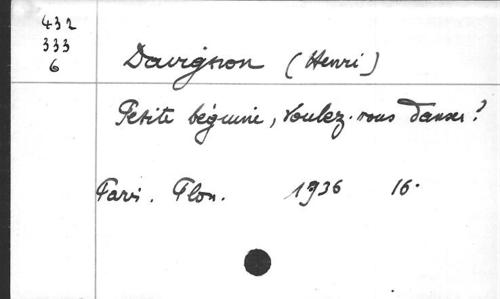 432
333
6
Davignon (Henri)
Petite béguine, voulez-vous danser?
Paris. Plon. 1936 16.